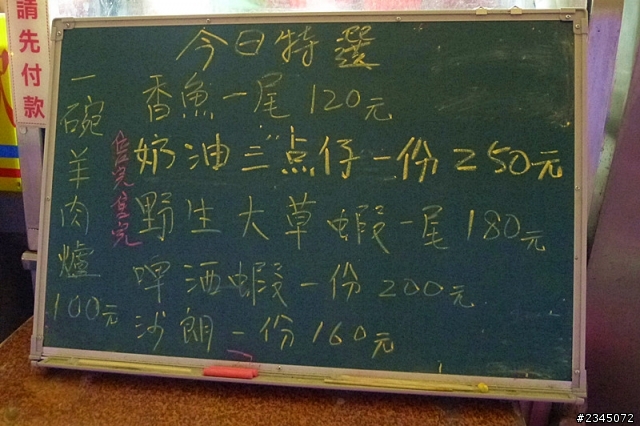 請先付款
今日特選
香魚一尾120元
奶油三点仔一份250元
野生大草蝦一尾180元
啤酒蝦一份200元
沙朗一份160元
一碗羊肉爐100元
售完售完
#2345072